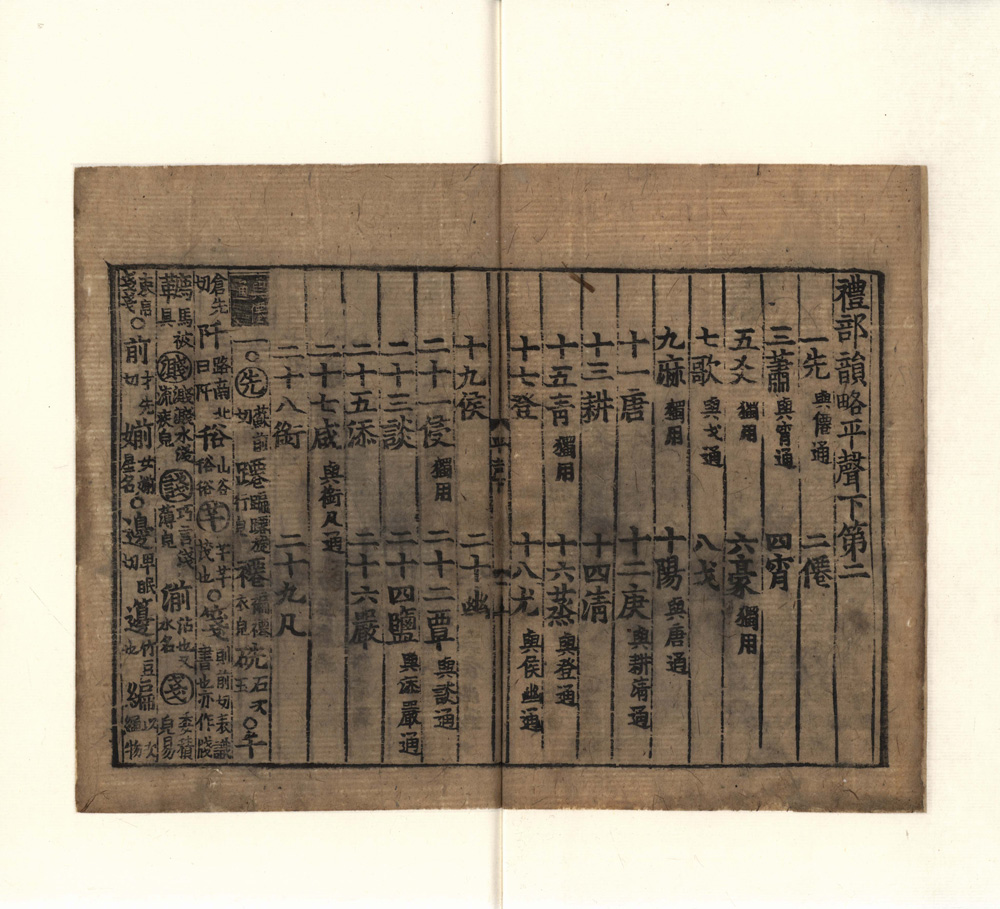 禮部韻略平聲下第二
一先 與僊通 二僊
三蕭 與宵通 四宵
五爻 獨用 六豪 獨用
七歌 與戈通 八戈
九麻 獨用 十陽 與唐通
十一唐 十二庚 與耕清通
十三耕 十四清
十五青 獨用 十六蒸 與登通
十七登 十八尤 與侯幽通
平声下
十九侯 二十幽
二十一侵 獨用 二十二覃 與談通
二十三談 二十四鹽 與添嚴通
二十五添 二十六嚴
二十七咸 與銜凡通
二十八銜 二十九凡
一○先 蘇前切 躚 行皃 褼 衣皃 硗 石次玉 ○千
倉先切 阡 路南北曰阡 谸 山谷 芊 ○箋 則前切表識書也亦作牋
馬被具 濺 水疾流皃 諓 巧言 湔 水名 戔 委積皃易
束帛戔戔 ○前 才先切 媊 女媊星名 ○邊 卑眠切 籩 竹豆也 編 次也 織物